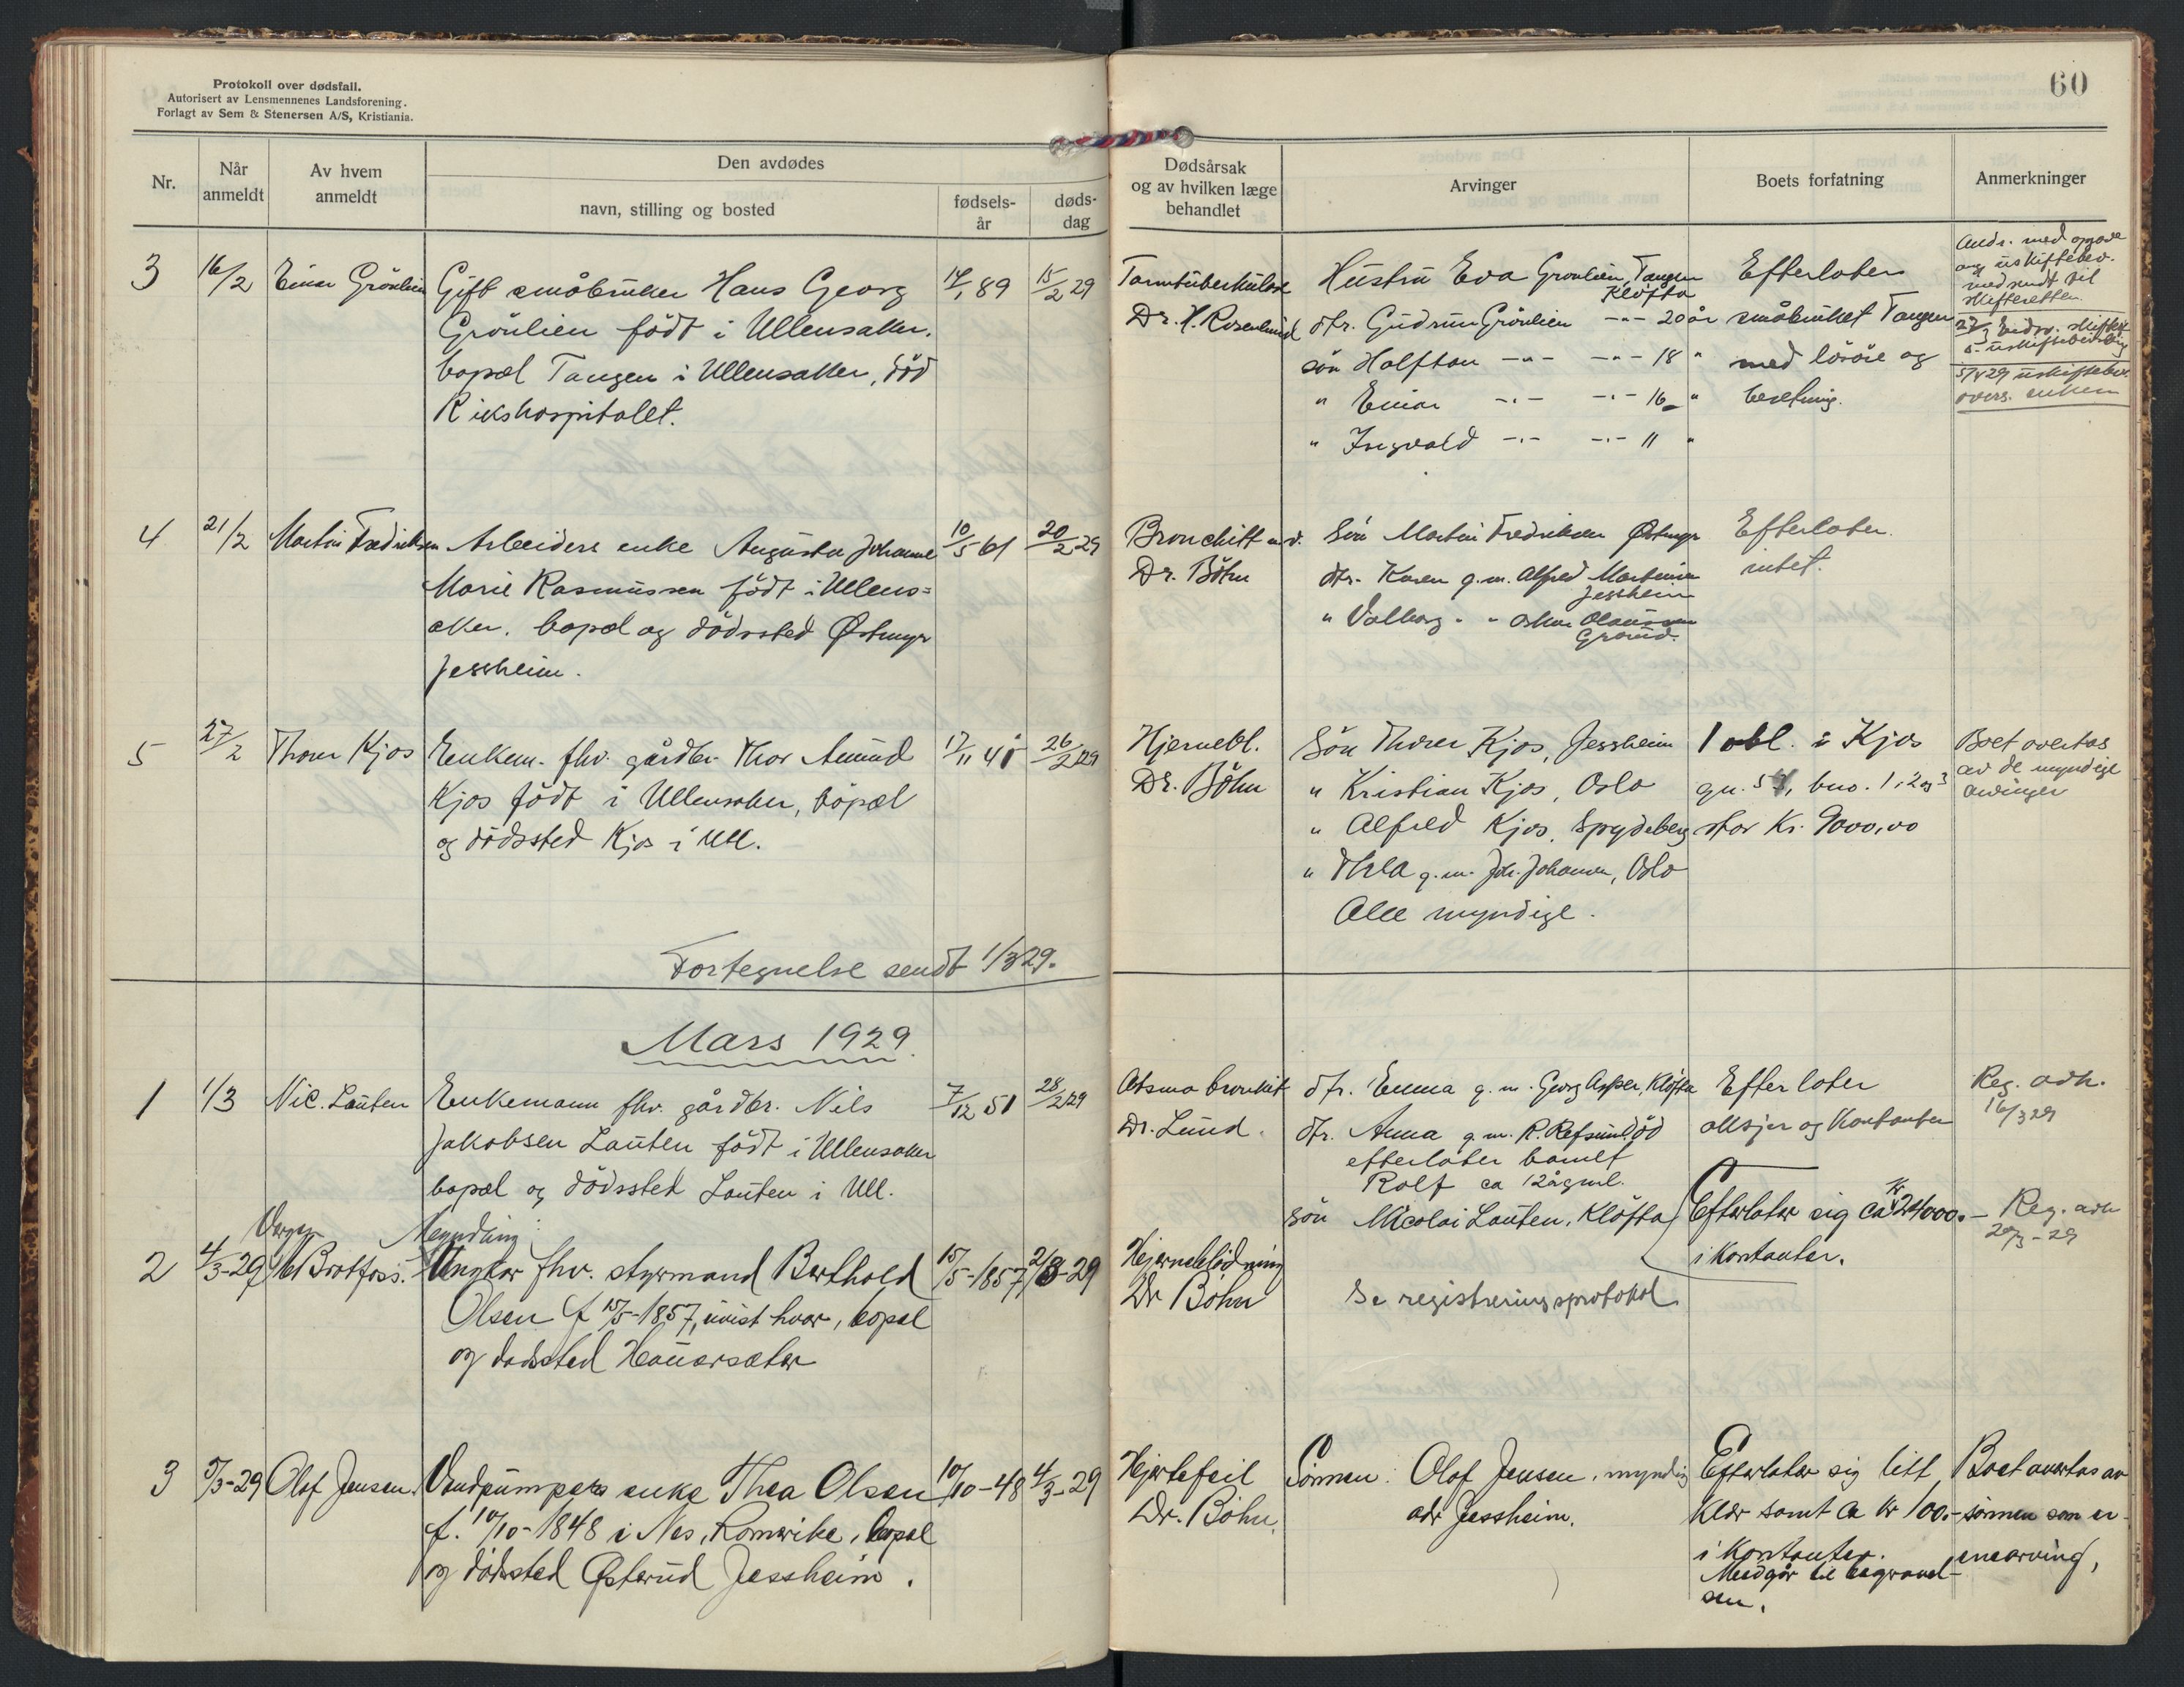 Protokoll over dødsfall.
Autorisert av Lensmennenes Landsforening.
Forlagt av Sem & Stenersen A/S, Kristiania.
60
Nr.
Når anmeldt
Av hvem anmeldt
Den avdødes
navn, stilling og bosted
fødsels-år
døds-dag
Dødsårsak og av hvilken læge behandlet
Arvinger
Boets forfatning
Anmerkninger
3
16/2
Einar Grönlien
Gift småbruker Hans Georg
Grönlien födt i Ullensaker.
bopæl Tangen i Ullensaker, död
Rikshospitalet.
14/1 89
15/2 29
Tarmtuberkulose
Dr. H. Rosenlund
Hustru Eva Grönlien, Tangen
Klöfta
dtr. Gudrun Grönlien -"- 20 år
sön Halfdan -"- -"- 18 "
" Einar -"- -"- 16 "
" Ingvald -"- -"- 11 "
Efterlater
småbruket Tangen
med lösöre og
besetning.
Andr. med opgave
og uskiftebev.
medsendt til
skifteretten.
27/3
5/4 29 uskiftebev.
overs. enken
4
21/2
Martin Fredriksen
Arbeiders enke Augusta Johanne
Marie Rasmussen födt i Ullens=
aker. bopæl og dödssted Østmyr
Jessheim.
10/5 61
20/2 29
Bronchitt m.v.
Dr. Böhn
Sön Martin Fredriksen Østmyr
dtr. Karen g.m. Alfred Martinsen
Jessheim
" Valborg " " Oskar Olaussen
Grönd.
Efterlater
intet.
5
27/2
Thorer Kjos
Enkem. fhv. gårdbr. Thor Amund
Kjos födt i Ullensaker, bopæl
og dödssted Kjos i Ull.
17/11 41
26/2 29
Hjernebl.
Dr. Böhn
Sön Thorer Kjos, Jessheim
" Kristian Kjos, Oslo
" Alfred Kjos, Spydeberg
" Thea g.m. Joh. Johansen, Oslo
Alle myndige.
1 obl. i Kjos
gn. 51, bno. 1, 2 og 3
stor Kr. 9000,00
Boet overtas
av de myndige
arvinger
Fortegnelse sendt 1/3 29.
Mars 1929.
1
1/3
Nic. Lauten
Enkemann fhv. gårdbr. Nils
Jakobsen Lauten födt i Ullensaker
bopæl og dödssted Lauten i Ull.
7/12 51
28/2 29
Astma bronkit
Dr. Lund.
dtr. Emma g.m. Georg Asper, Klöfta
dtr. Anna g.m. R. Refsund död
efterlater barnet
Rolf ca 12 år gml.
sön Nicolai Lauten, Klöfta
Efterlater
aksjer og Kontanter
Reg. adh.
16/3 29
2
4/3-29
Verge
M Brotfoss.
Myndling:
Ungkar fhv. styrmand Berthold
Olsen f 15/5-1857, uvist hvor, bopæl
og dødssted Hauersæter
15/5-1857
2/3-29
Hjerneblødning
Dr Böhn
Se registreringsprotokol.
Efterlater sig ca Kr 24000.-
i Kontanter.
Reg. adh
20/3-29
3
5/3-29
Olaf Jensen.
Vandpumpers enke Thea Olsen
f. 10/10-1848 i Nes, Romerike, bopæl
og dødssted Østerud Jessheim.
10/10-48
4/3-29
Hjertefeil
Dr. Böhn.
Sønnen: Olaf Jensen, myndig
adr Jessheim.
Efterlater sig litt
klær samt ca kr 100.-
i Kontanter.
Medgår til begravel-
sen.
Boet overtas av
sönnen som er
enearving,